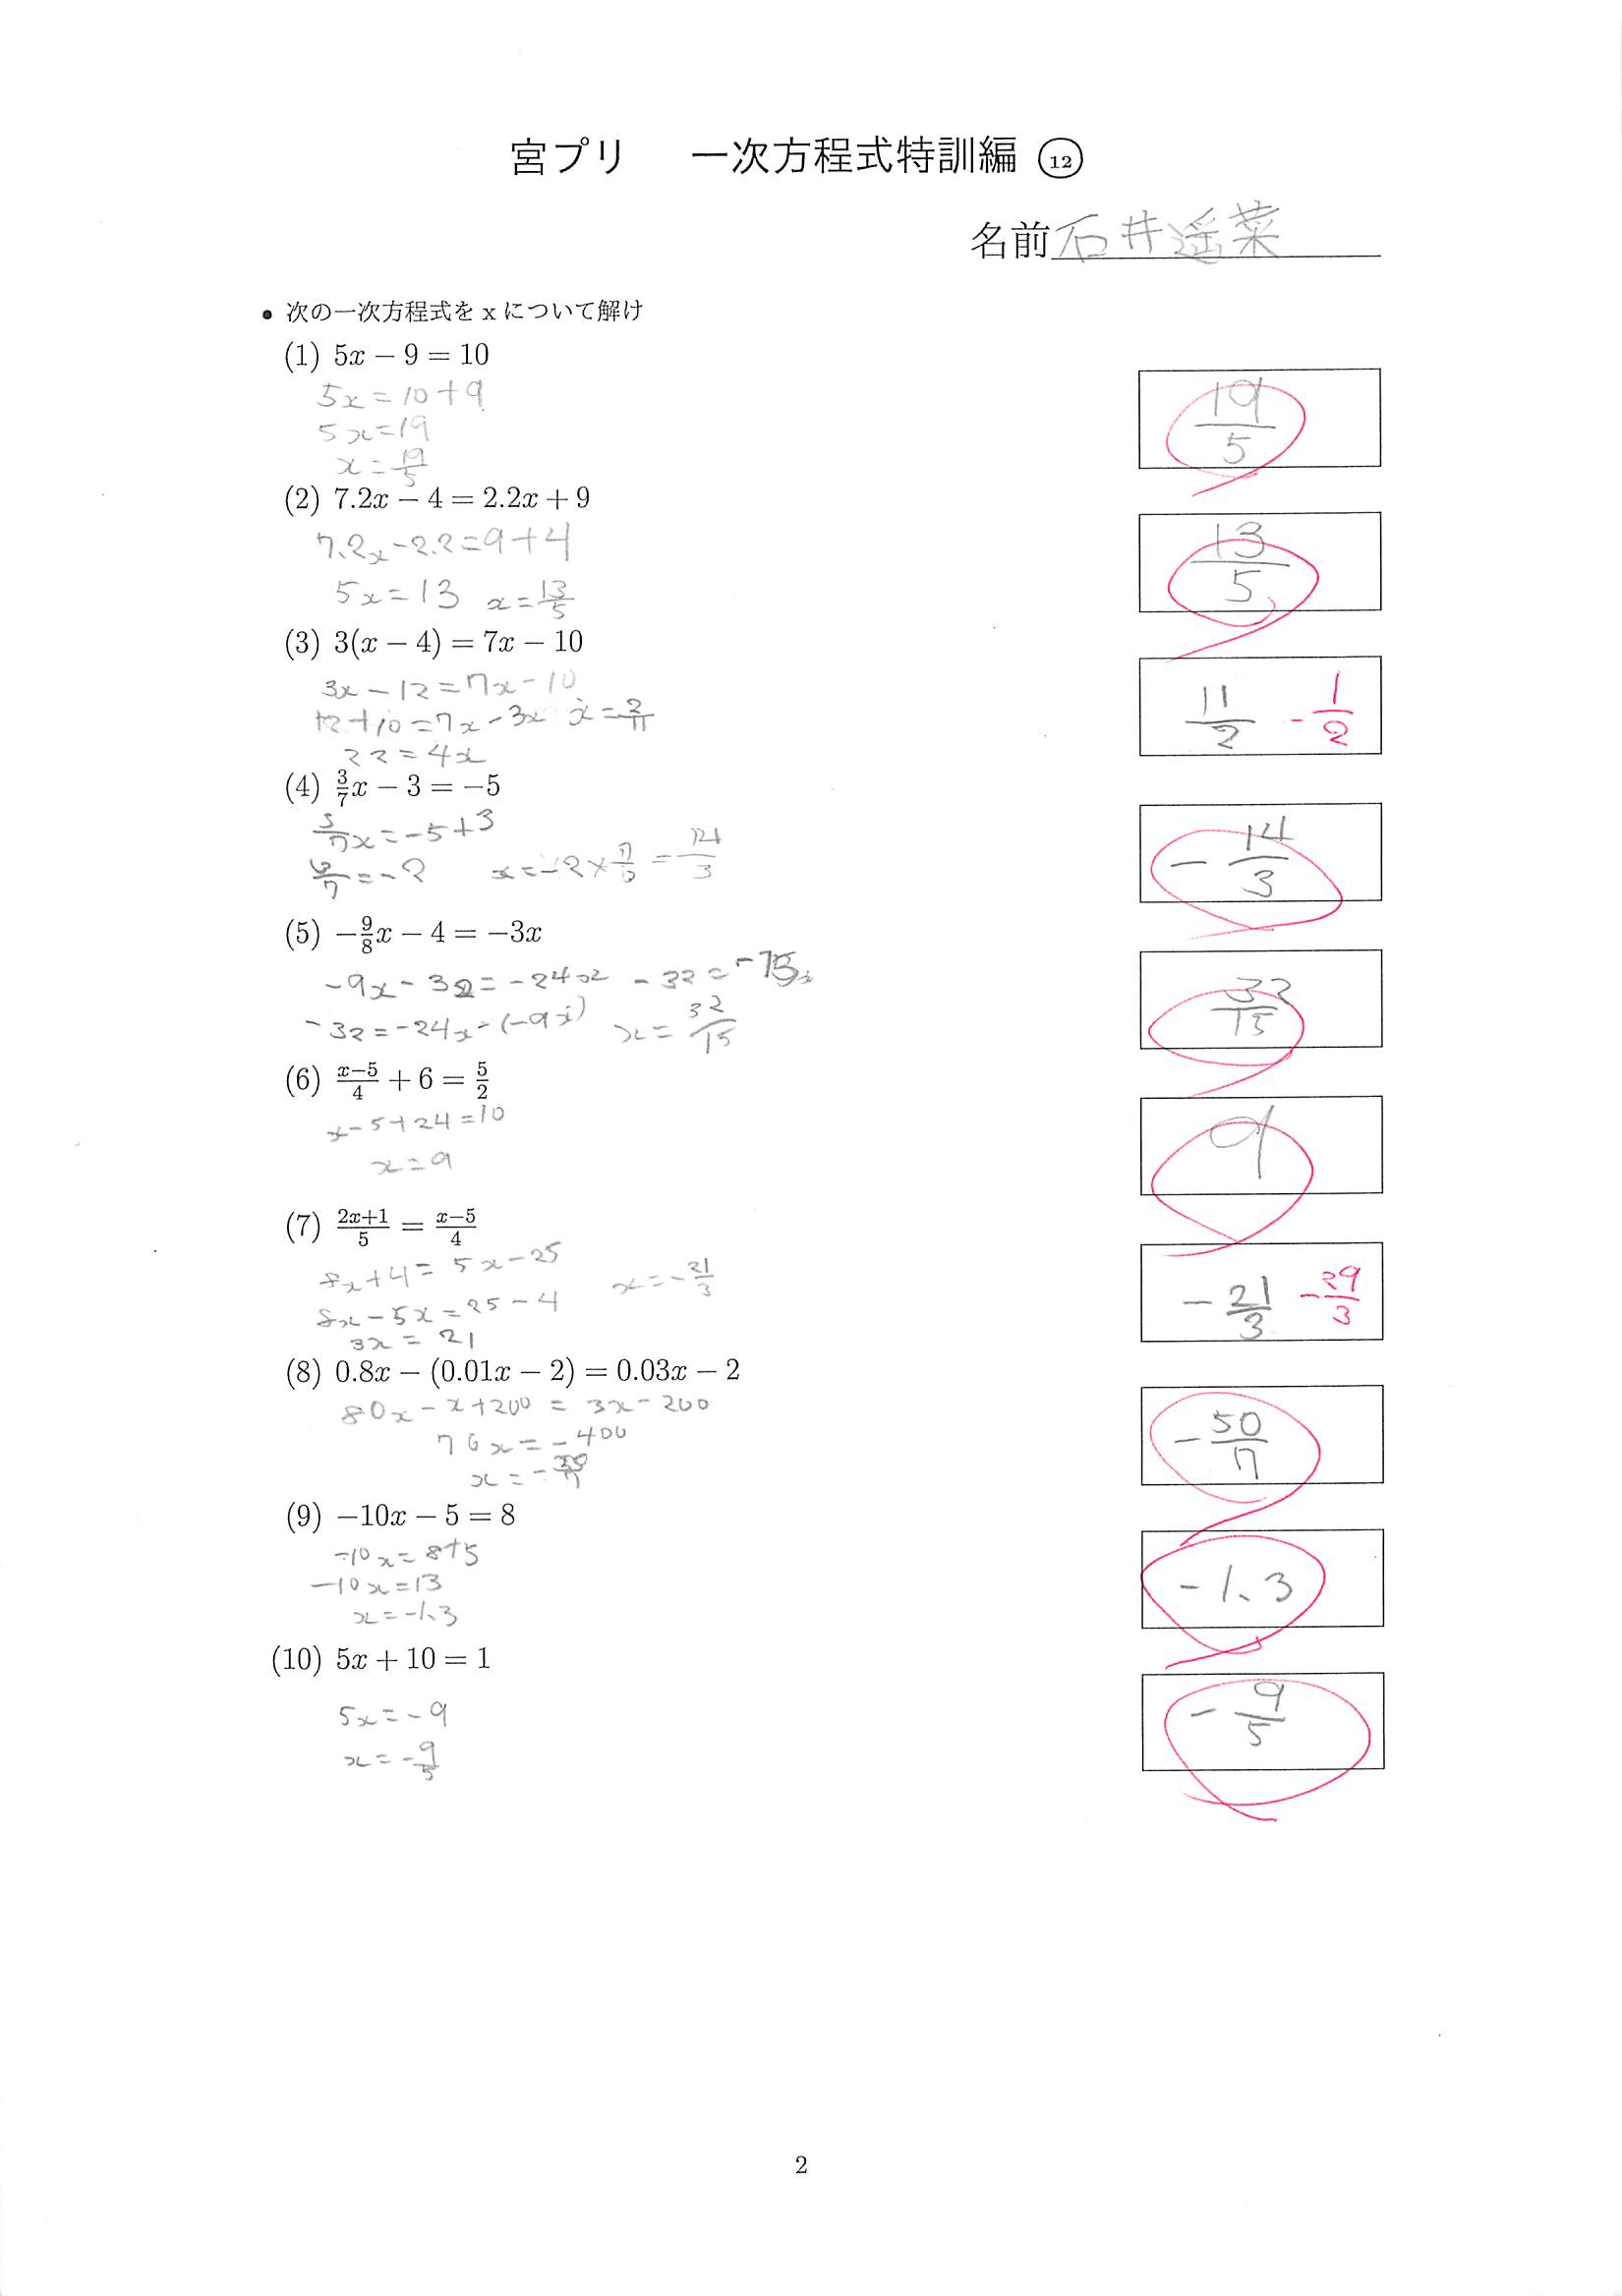 宮プリ 一次方程式特訓編 ⑫
名前 石井遥菜
• 次の一次方程式を x について解け
(1) 5x − 9 = 10
5x = 10 + 9
5x = 19
x = 19/5
19/5
(2) 7.2x − 4 = 2.2x + 9
7.2x - 2.2 = 9 + 4
5x = 13 x = 13/5
13/5
(3) 3(x − 4) = 7x − 10
3x - 12 = 7x - 10
12 + 10 = 7x - 3x x = 2/11
22 = 4x
11/2 - 1/2
(4) 3/7x − 3 = −5
3/7x = -5 + 3
3/7 = -2 x = -2 × 7/3 = 14/3
- 14/3
(5) −9/8x − 4 = −3x
-9x - 32 = -24x - 32 = -15x
-32 = -24x - (-9x) x = 32/15
32/15
(6) x−5/4 + 6 = 5/2
x - 5 + 24 = 10
x = 9
9
(7) 2x+1/5 = x−5/4
8x + 4 = 5x - 25 x = - 21/3
8x - 5x = 25 - 4
3x = 21
- 21/3 - 29/3
(8) 0.8x − (0.01x − 2) = 0.03x − 2
80x - x + 200 = 3x - 200
76x = - 400
- 50/7
(9) −10x − 5 = 8
-10x = 8+5
-10x = 13
x = -1.3
-1.3
(10) 5x + 10 = 1
5x = -9
x = - 9/5
- 9/5
2